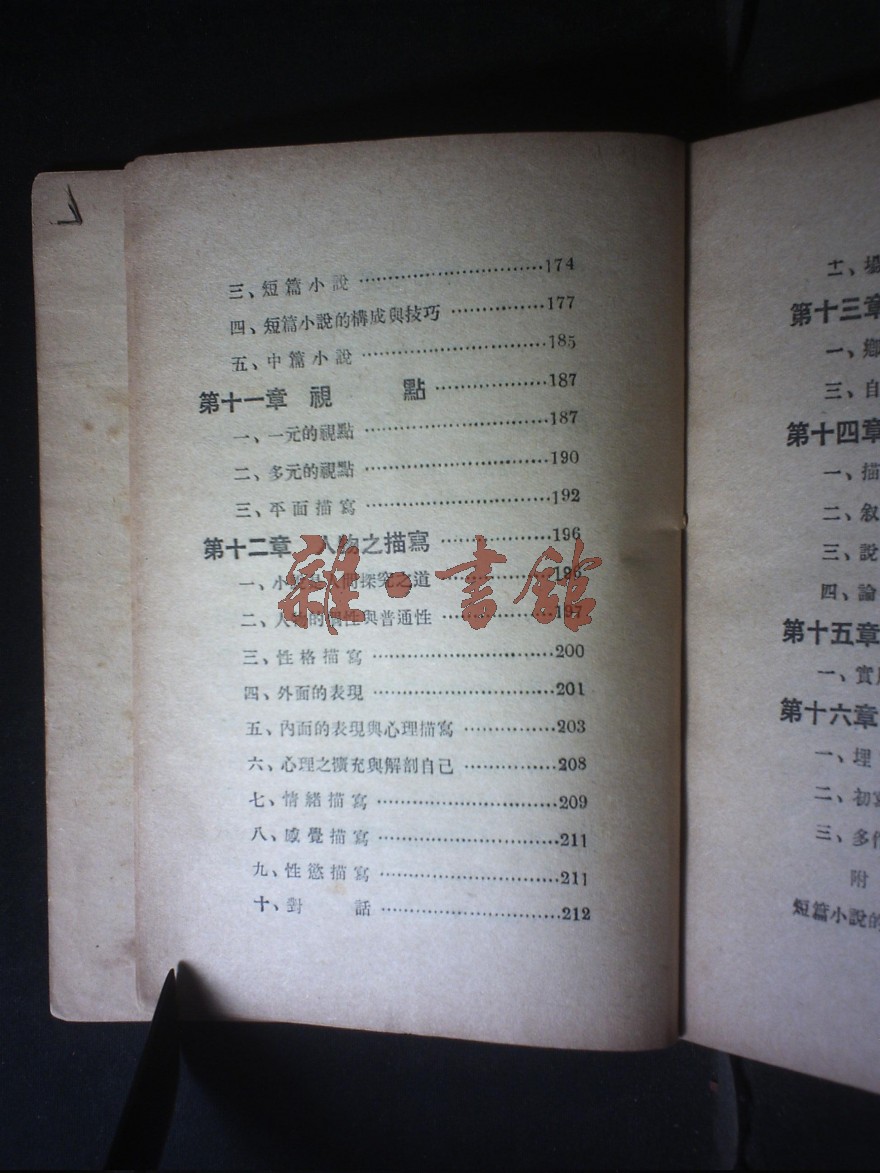 三、短篇小說 ……………………………174
四、短篇小說的構成與技巧 ………………177
五、中篇小說 ……………………………185
第十一章 視 點 …………………187
一、一元的視點 ……………………………187
二、多元的視點 ……………………………190
三、平面描寫 ……………………………192
第十二章 人物之描寫 …………………196
一、小說是人間探究之道 …………………196
二、人物的個性與普通性 …………………197
三、性格描寫 ……………………………200
四、外面的表現 ……………………………201
五、內面的表現與心理描寫 ………………203
六、心理之擴充與解剖自己 ………………208
七、情緒描寫 ……………………………209
八、感覺描寫 ……………………………211
九、性慾描寫 ……………………………211
十、對 話 ……………………………212
雜·書館
十一、場
第十三章
一、鄉
三、自
第十四章
一、描
二、叙
三、說
四、論
第十五章
一、實
第十六章
一、埋
二、初寫
三、多作
附
短篇小說的